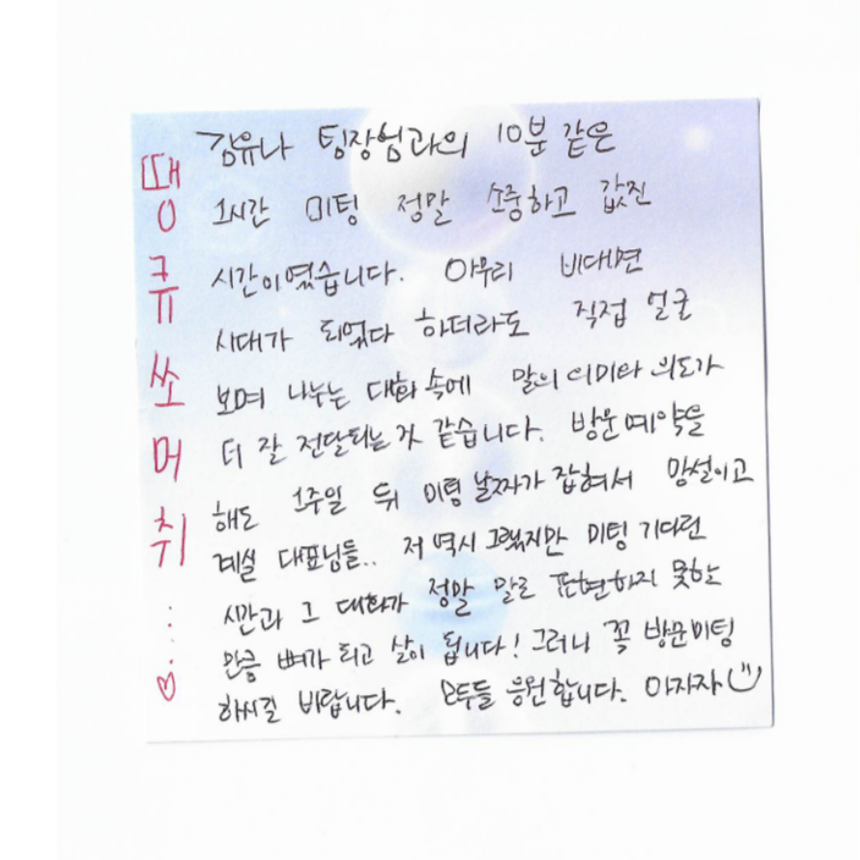 땡큐쏘머취...♡
김유나 팀장님과의 10분 같은
1시간 미팅 정말 소중하고 값진
시간이였습니다. 아무리 비대면
시대가 되었다 하더라도 직접 얼굴
보며 나누는 대화 속에 말의 의미와 의도가
더 잘 전달되는 것 같습니다. 방문예약을
해도 1주일 뒤 미팅 날짜가 잡혀서 망설이고
계실 대표님들.. 저 역시 그랬지만 미팅 기다린
시간과 그 대화가 정말 말로 표현하지 못하는
만큼 뼈가 되고 살이 됩니다! 그러니 꼭 방문미팅
하시길 바랍니다. 모두들 응원합니다. 아자자